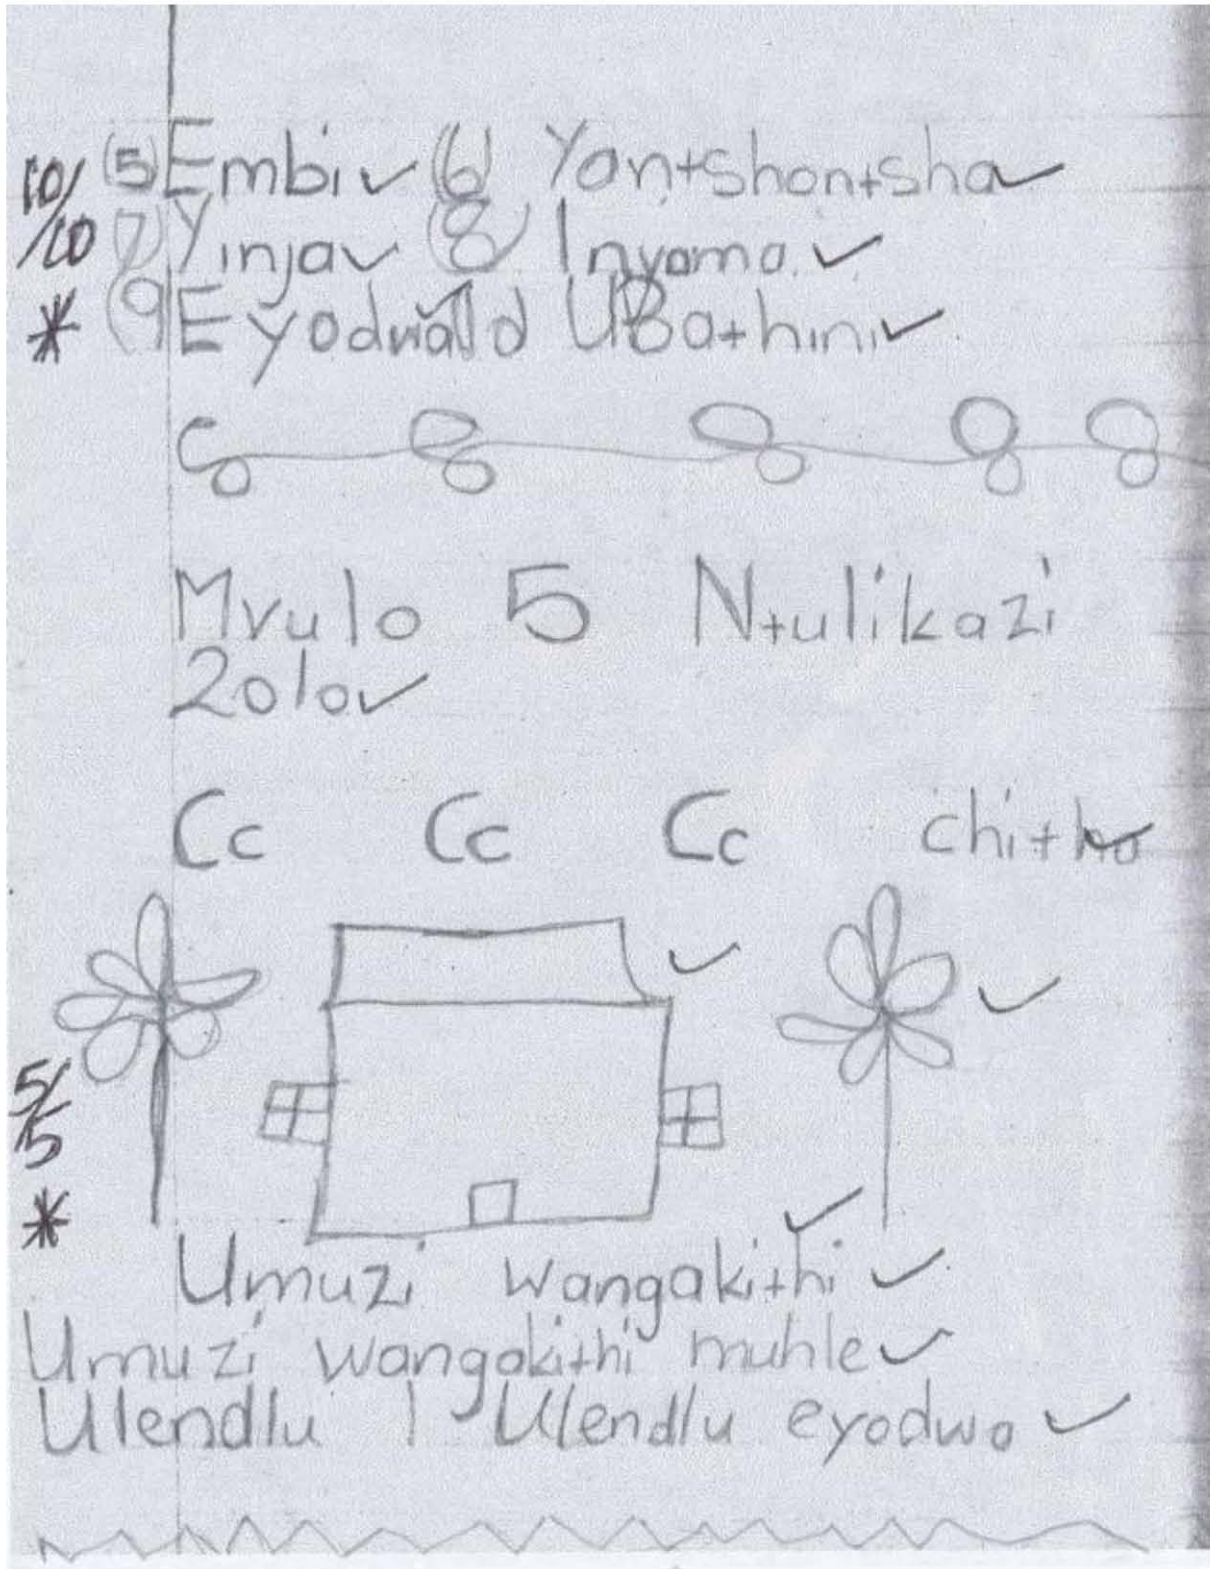 10/10 (5) Embi (6) Yantshontsha
(7) Yinja (8) Inyama
* (9) Eyodwa UBathini
Mvulo 5 Ntulikazi
2010
Cc Cc Cc chitha
5/5
*
Umuzi wangakithi
Umuzi wangakithi muhle
Ulendlu 1 Ulendlu eyodwa